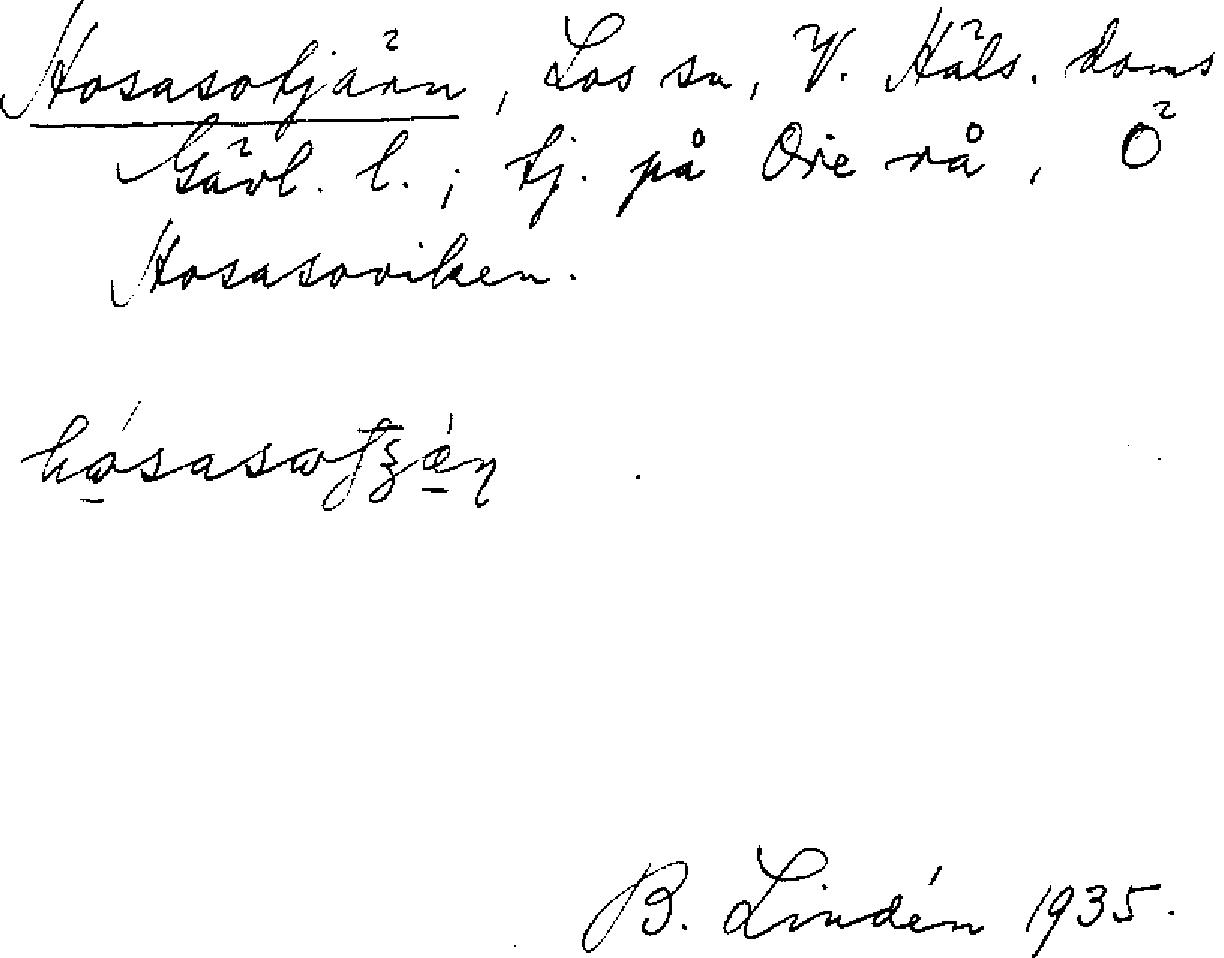 Hosasotjärn, Los sn, V. Häls. doms
Gävl. l.; tj. på Ore rå, Ö
Hosasoviken.
B. Lindén 1935.